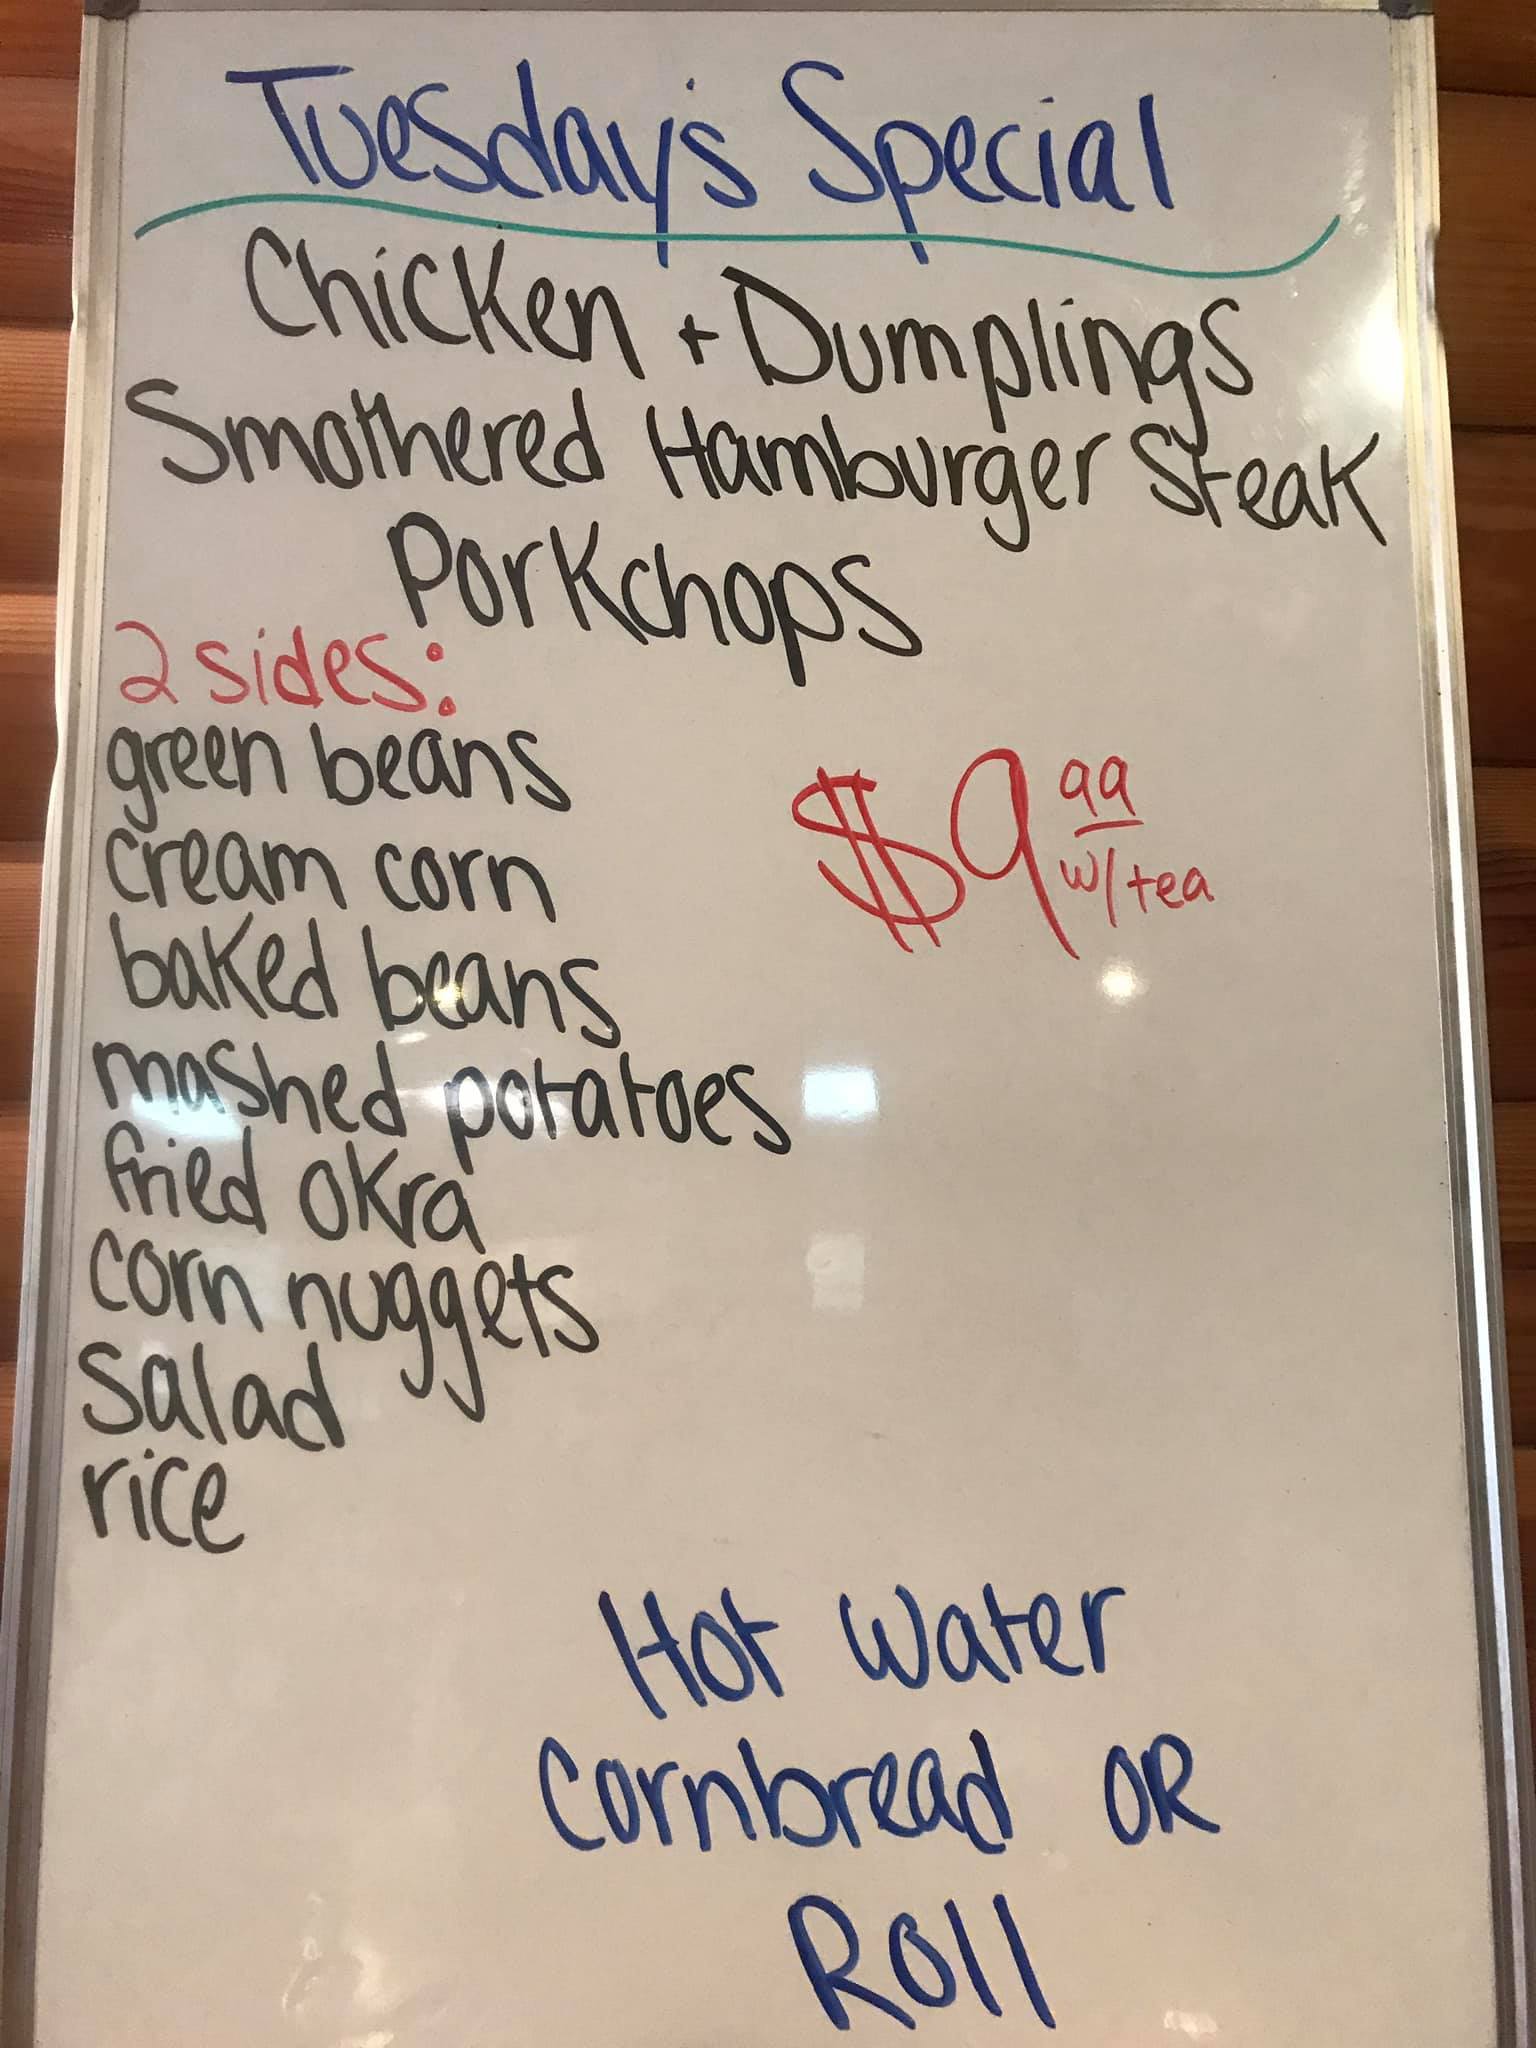 Tuesday's Special
Chicken + Dumplings
Smothered Hamburger Steak
Porkchops
2 sides:
green beans
cream corn
baked beans
mashed potatoes
fried okra
corn nuggets
Salad
rice
$9 99
w/tea
Hot Water
Cornbread OR
Roll